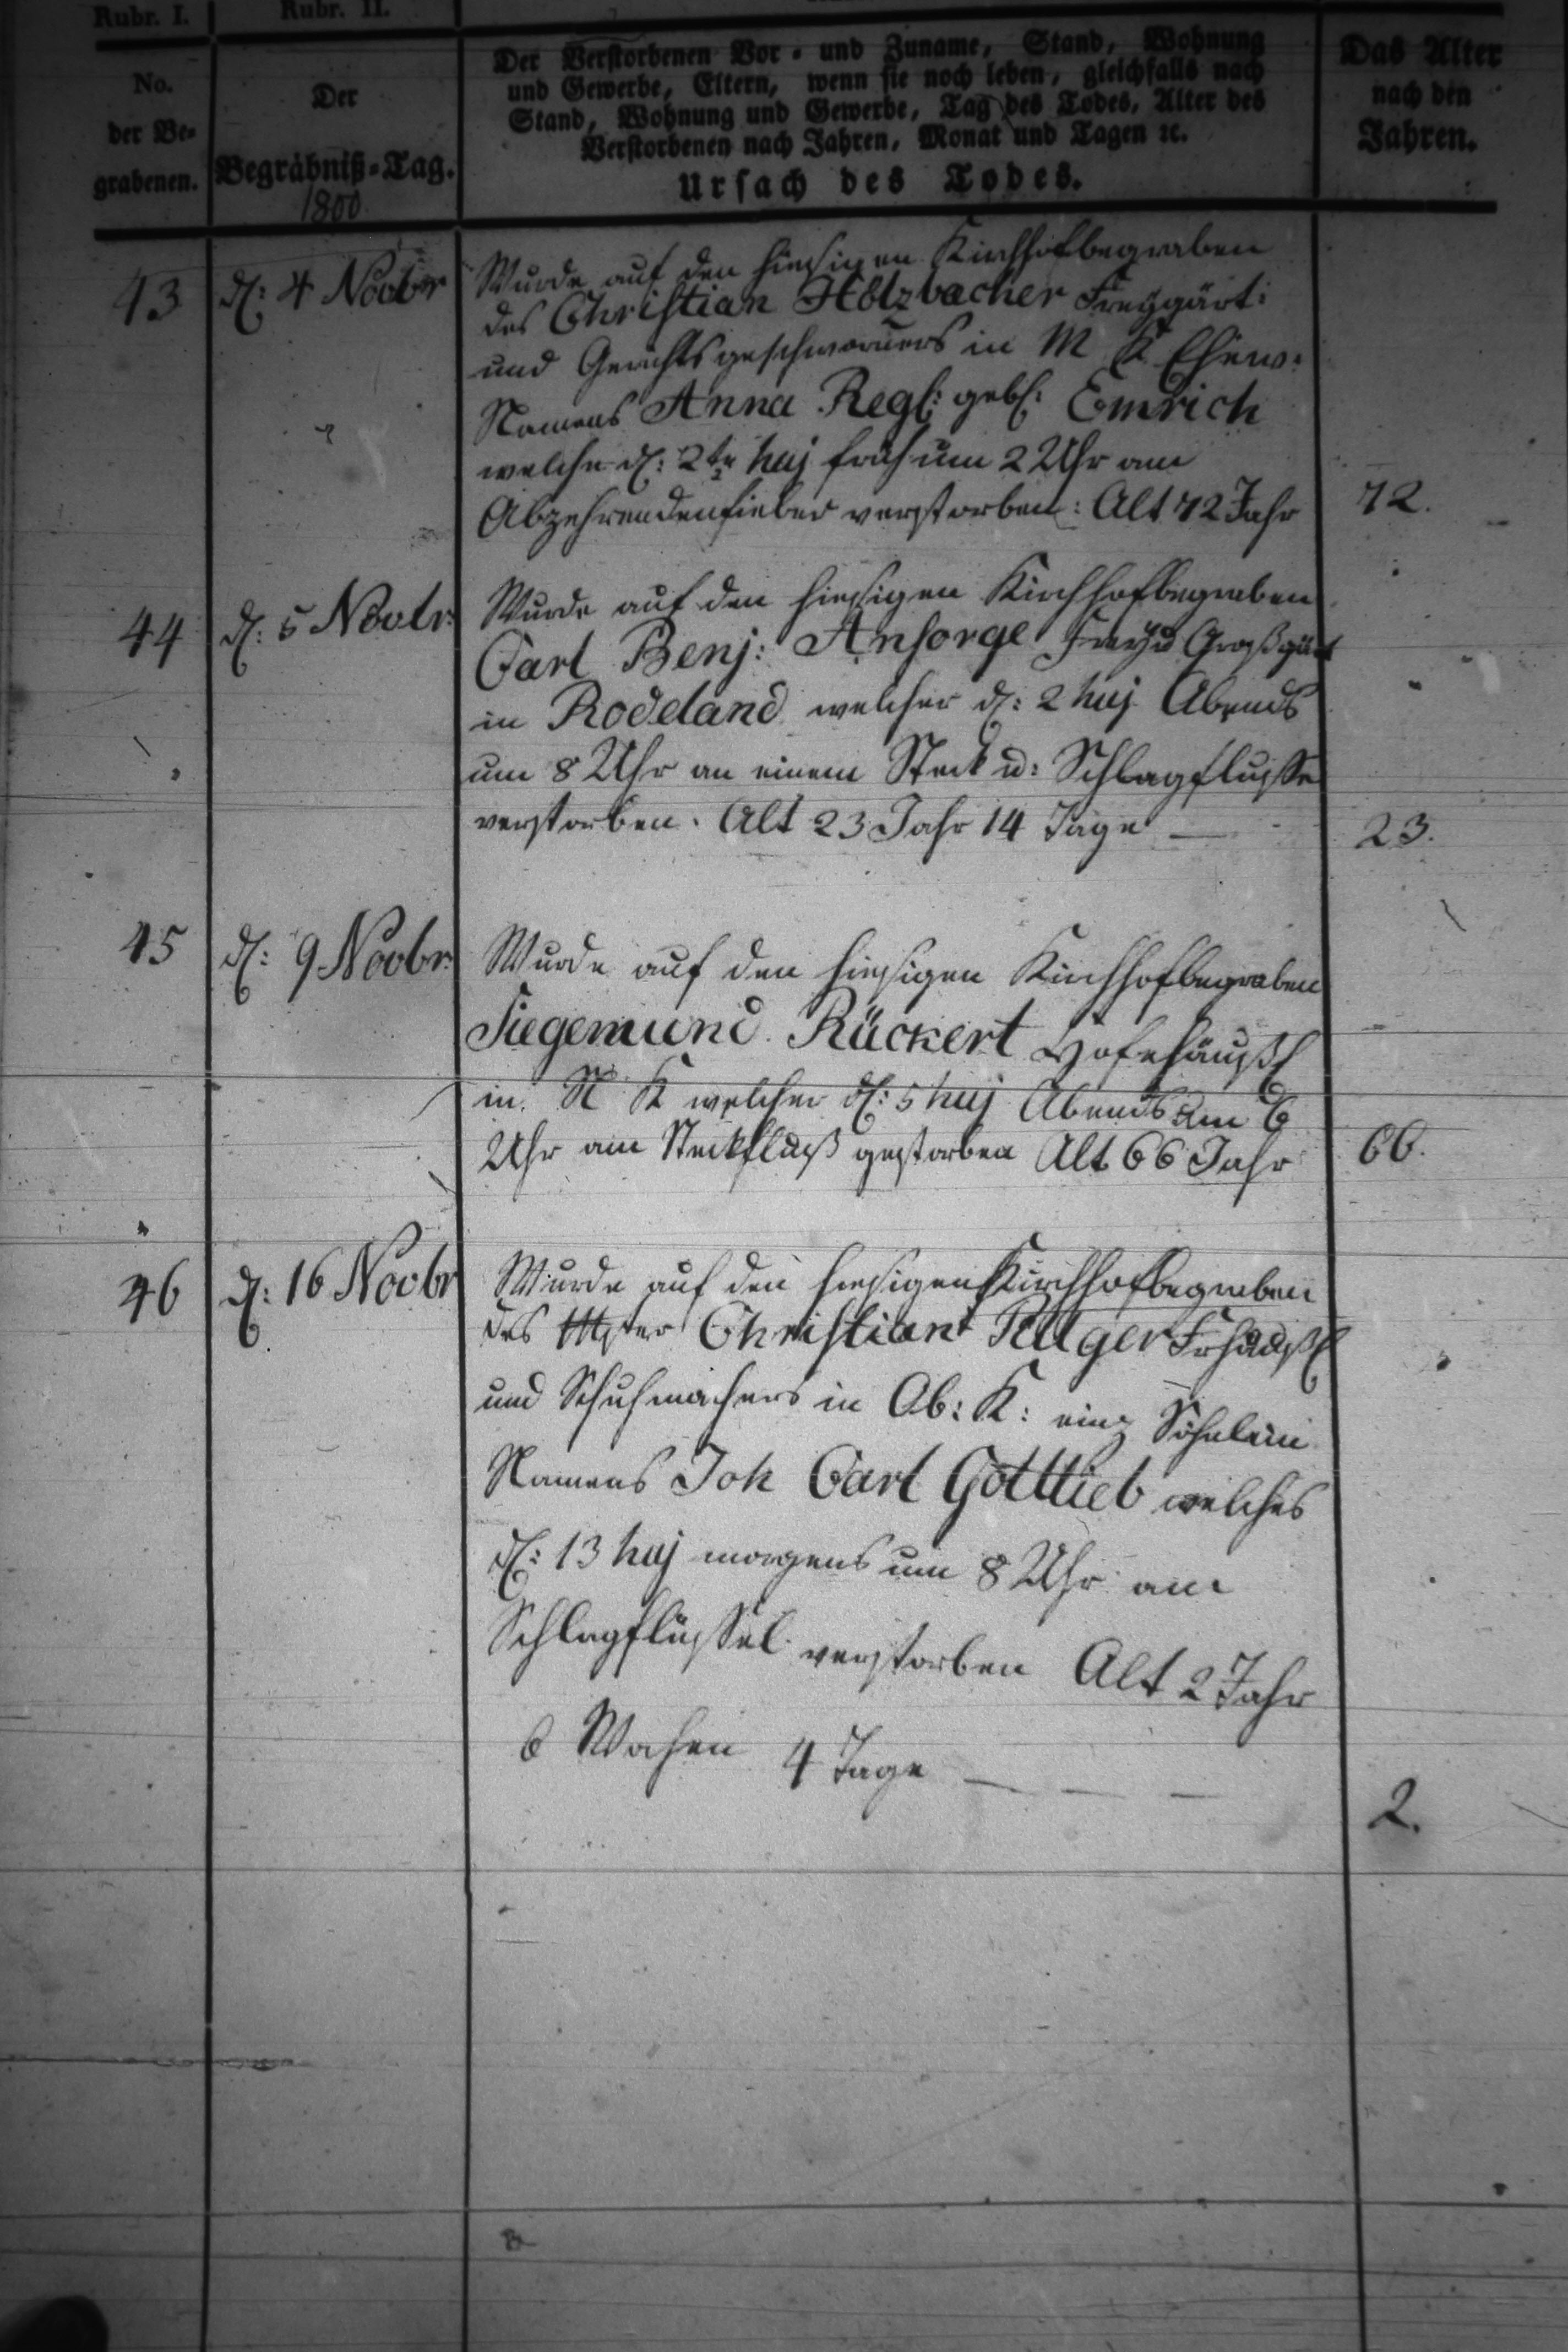 Rubr. I.
Rubr. II.
No.
der Be-
grabenen.
Der
Begräbniß-Tag.
1800
Der Verstorbenen Vor- und Zuname, Stand, Wohnung
und Gewerbe, Eltern, wenn sie noch leben, gleichfalls nach
Stand, Wohnung und Gewerbe, Tag des Todes, Alter des
Verstorbenen nach Jahren, Monat und Tagen ꝛc.
Ursach des Todes.
Das Alter
nach den
Jahren.
43
d: 4 Novbr
Wurde auf den hiesigen Kirchhof begraben
des Christian Holzbacher Freygärt:
und Gerichtsgeschworners in M K Ehew:
Namens Anna Regl: geb: Emrich
welche d: 2te huj früh um 2 Uhr am
Abzehrendenfieber verstorben: Alt 72 Jahr
72.
44
d: 5 Novbr:
Wurde auf den hiesigen Kirchhof begraben
Carl Benj: Ansorge Großgärt
in Rodeland welcher d: 2 huj Abends
um 8 Uhr an einem Steck u: Schlagflusse
verstorben. Alt 23 Jahr 14 Tage —
23.
45
d: 9 Novbr.
Wurde auf den hiesigen Kirchhof begraben
Siegemund Rückert Hofehäußl
in N K welcher d: 5 huj Abends um 6
Uhr am Steckfluß gestorben Alt 66 Jahr
66.
46
d: 16 Novbr
Wurde auf den hiesigen Kirchhof begraben
des Mster Christian Frhäußl
und Schuhmachers in Ob: K: einz Söhnlein
Namens Joh Carl Gottlieb welches
d: 13 huj morgens um 8 Uhr am
Schlagflüssel verstorben Alt 2 Jahr
6 Wochen 4 Tage — — —
2.